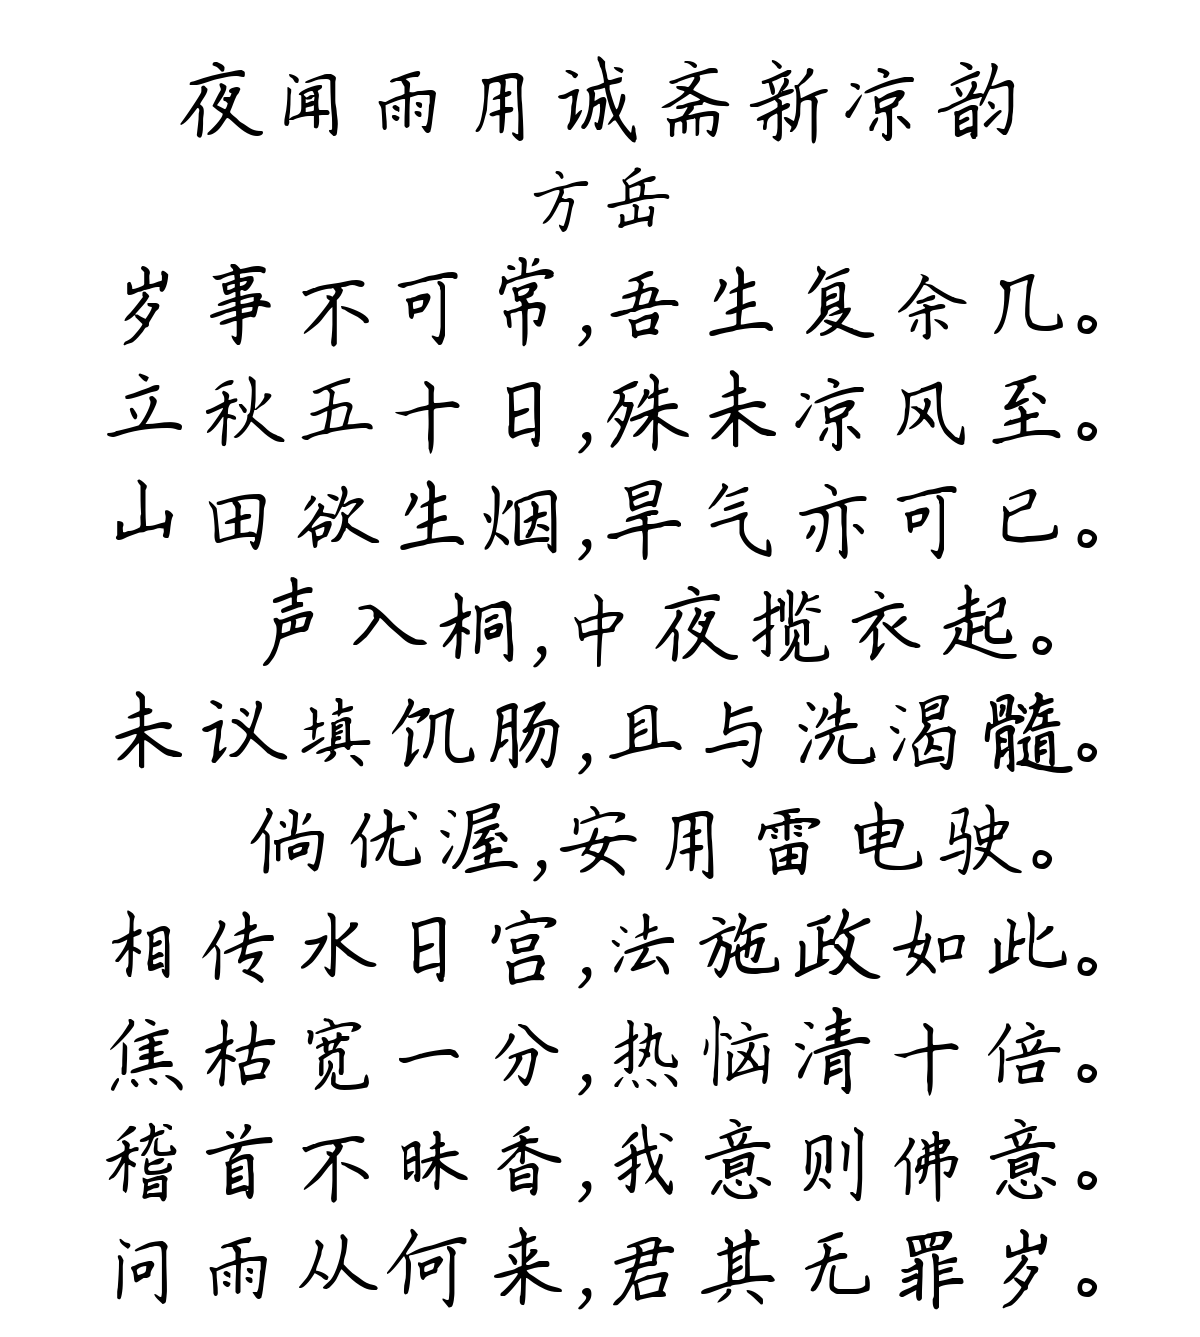 夜闻雨用诚斋新凉韵
方岳
岁事不可常,吾生复余几。
立秋五十日,殊未凉风至。
山田欲生烟,旱气亦可已。
声入桐,中夜揽衣起。
未议填饥肠,且与洗渴髓。
倘优渥,安用雷电驶。
相传水日宫,法施政如此。
焦枯宽一分,热恼清十倍。
稽首不昧香,我意则佛意。
问雨从何来,君其无罪岁。